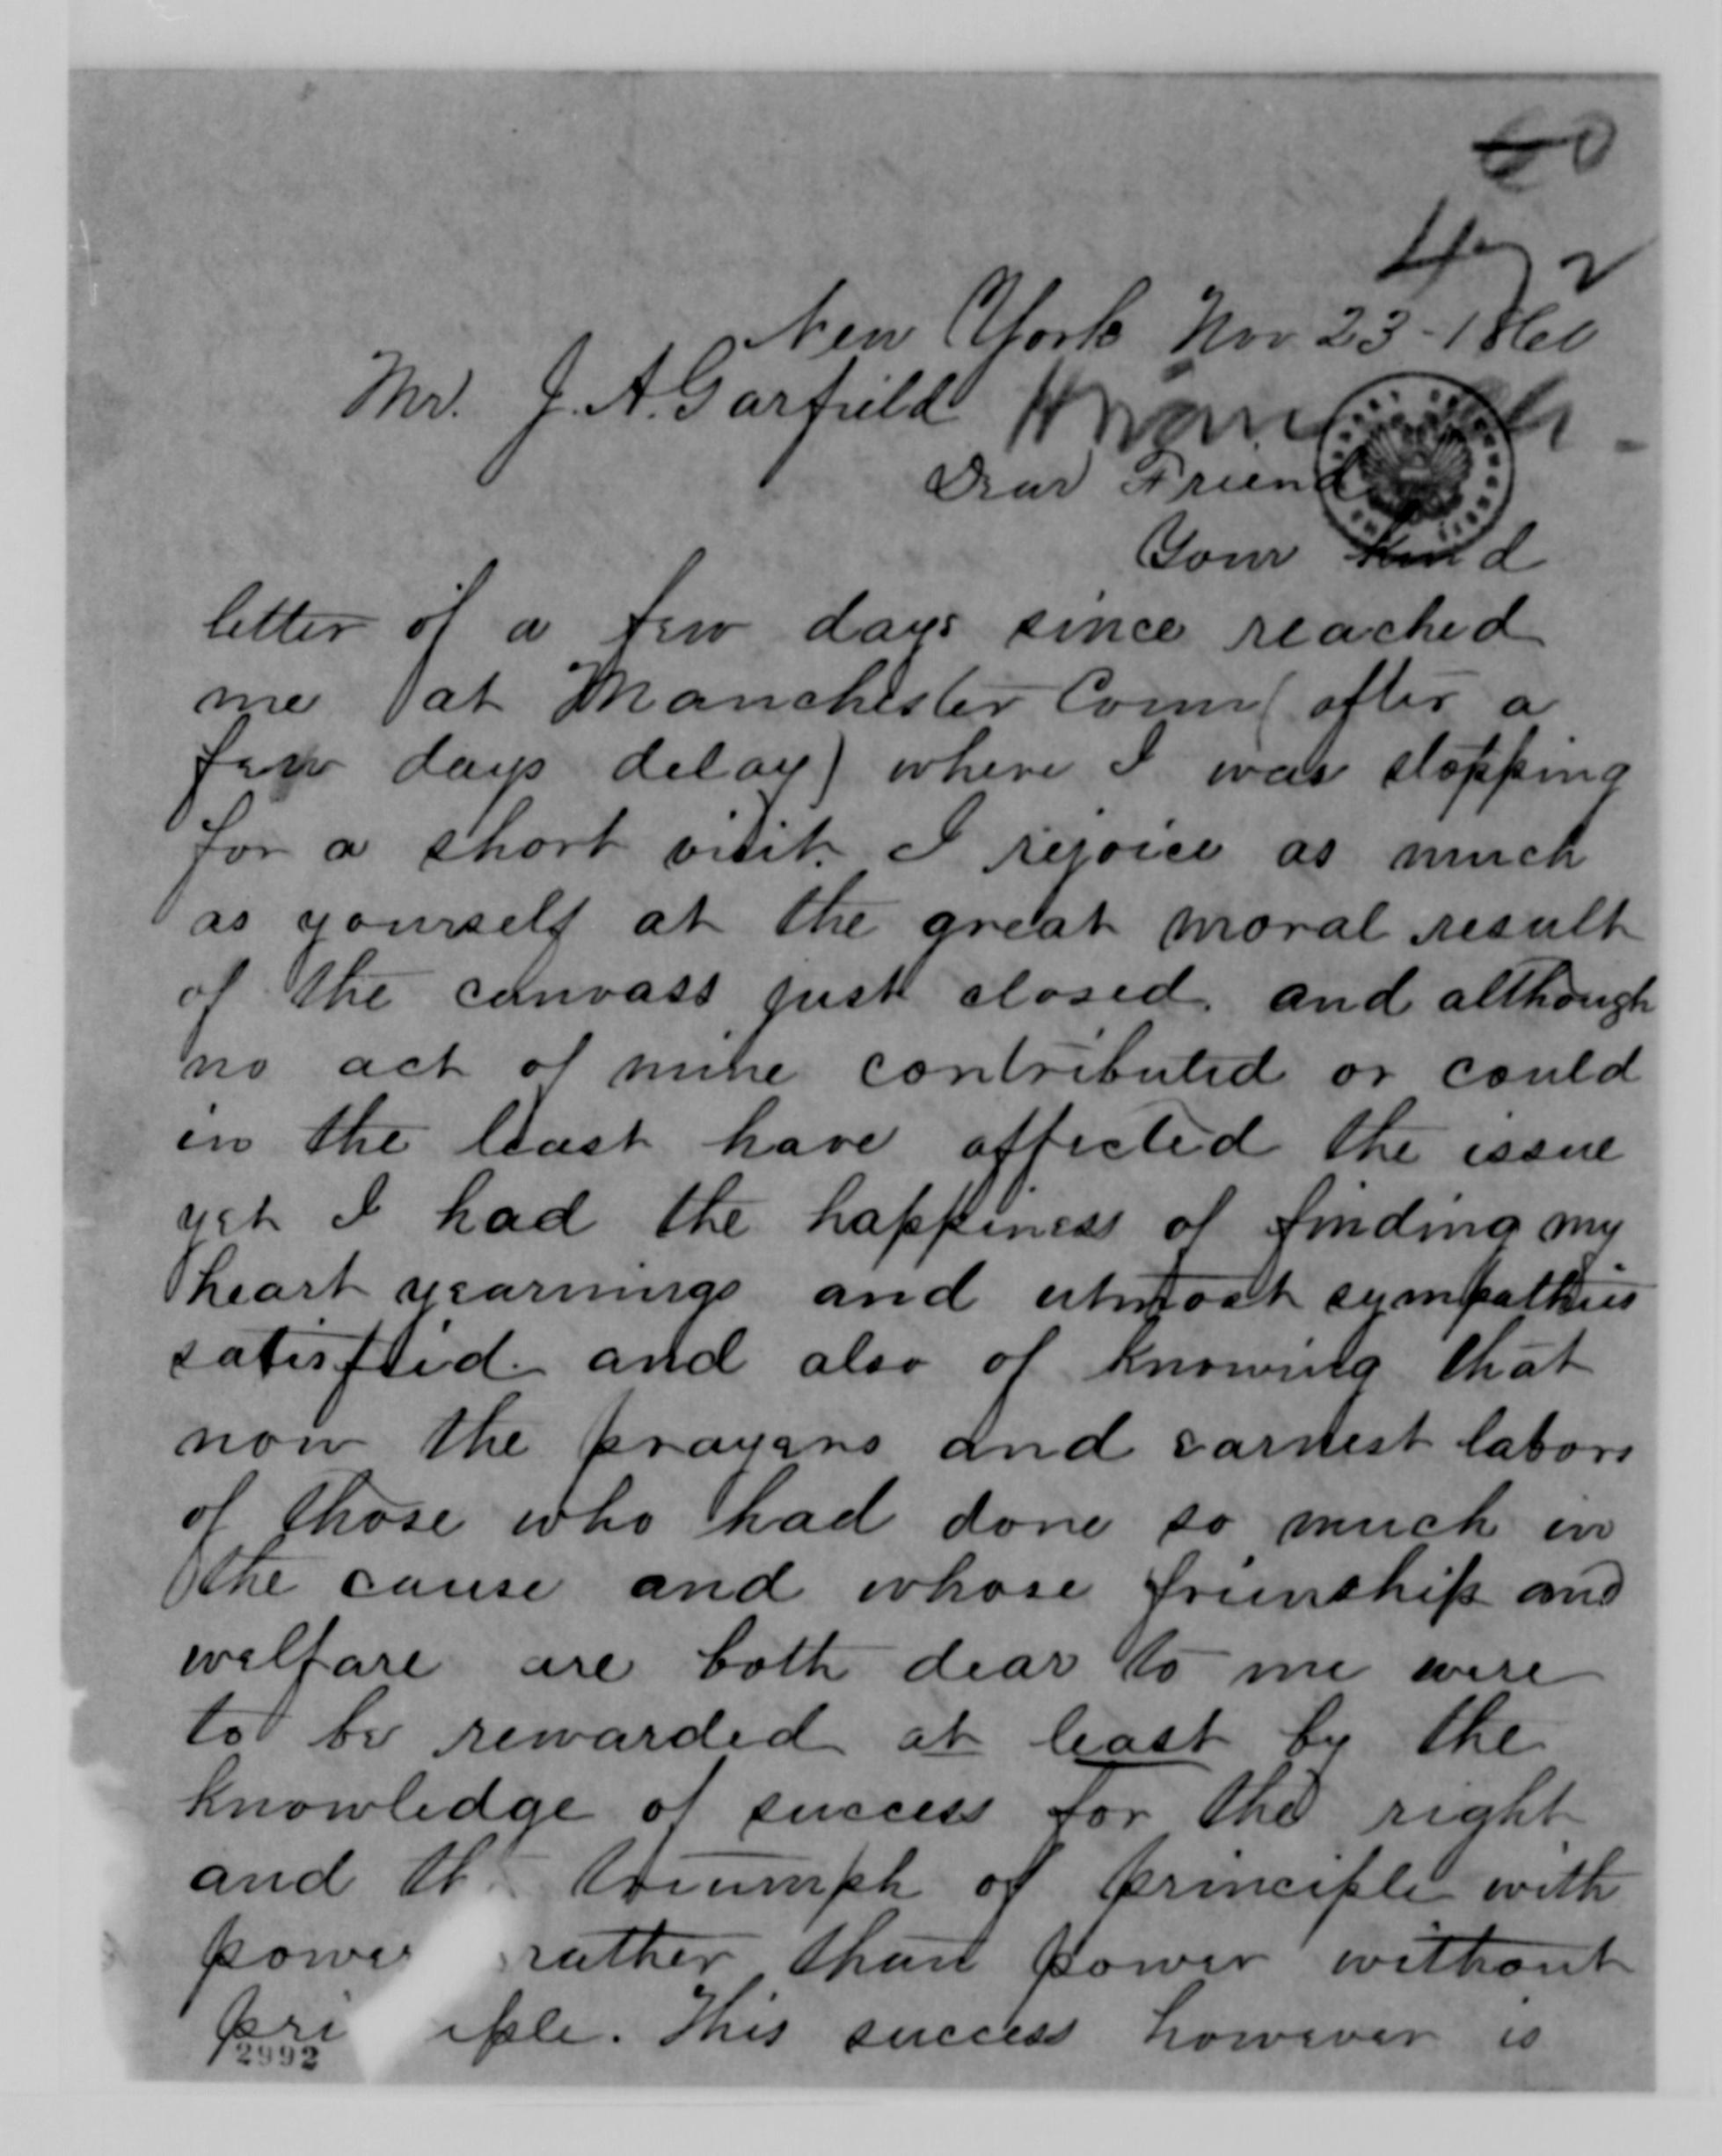 60
472
New York Nov 23 - 1860
Mr. J. A. Garfield
Dear Friend
Your kind
letter of a few days since reached
me at Manchester Conn (after a
few days delay) where I was stopping
for a short visit. I rejoice as much
as yourself at the great moral result
of the canvass just closed. and although
no act of mine contributed or could
in the least have affected the issue
yet I had the happiness of finding my
heart yearnings and utmost sympathies
satisfied. and also of knowing that
now the prayers and earnest labors
of those who had done so much in
the cause and whose frienship and
welfare are both dear to me were
to be rewarded at least by the
knowledge of success for the right
and th triumph of principle with
power rather than power without
pri iple. This success however is
2992